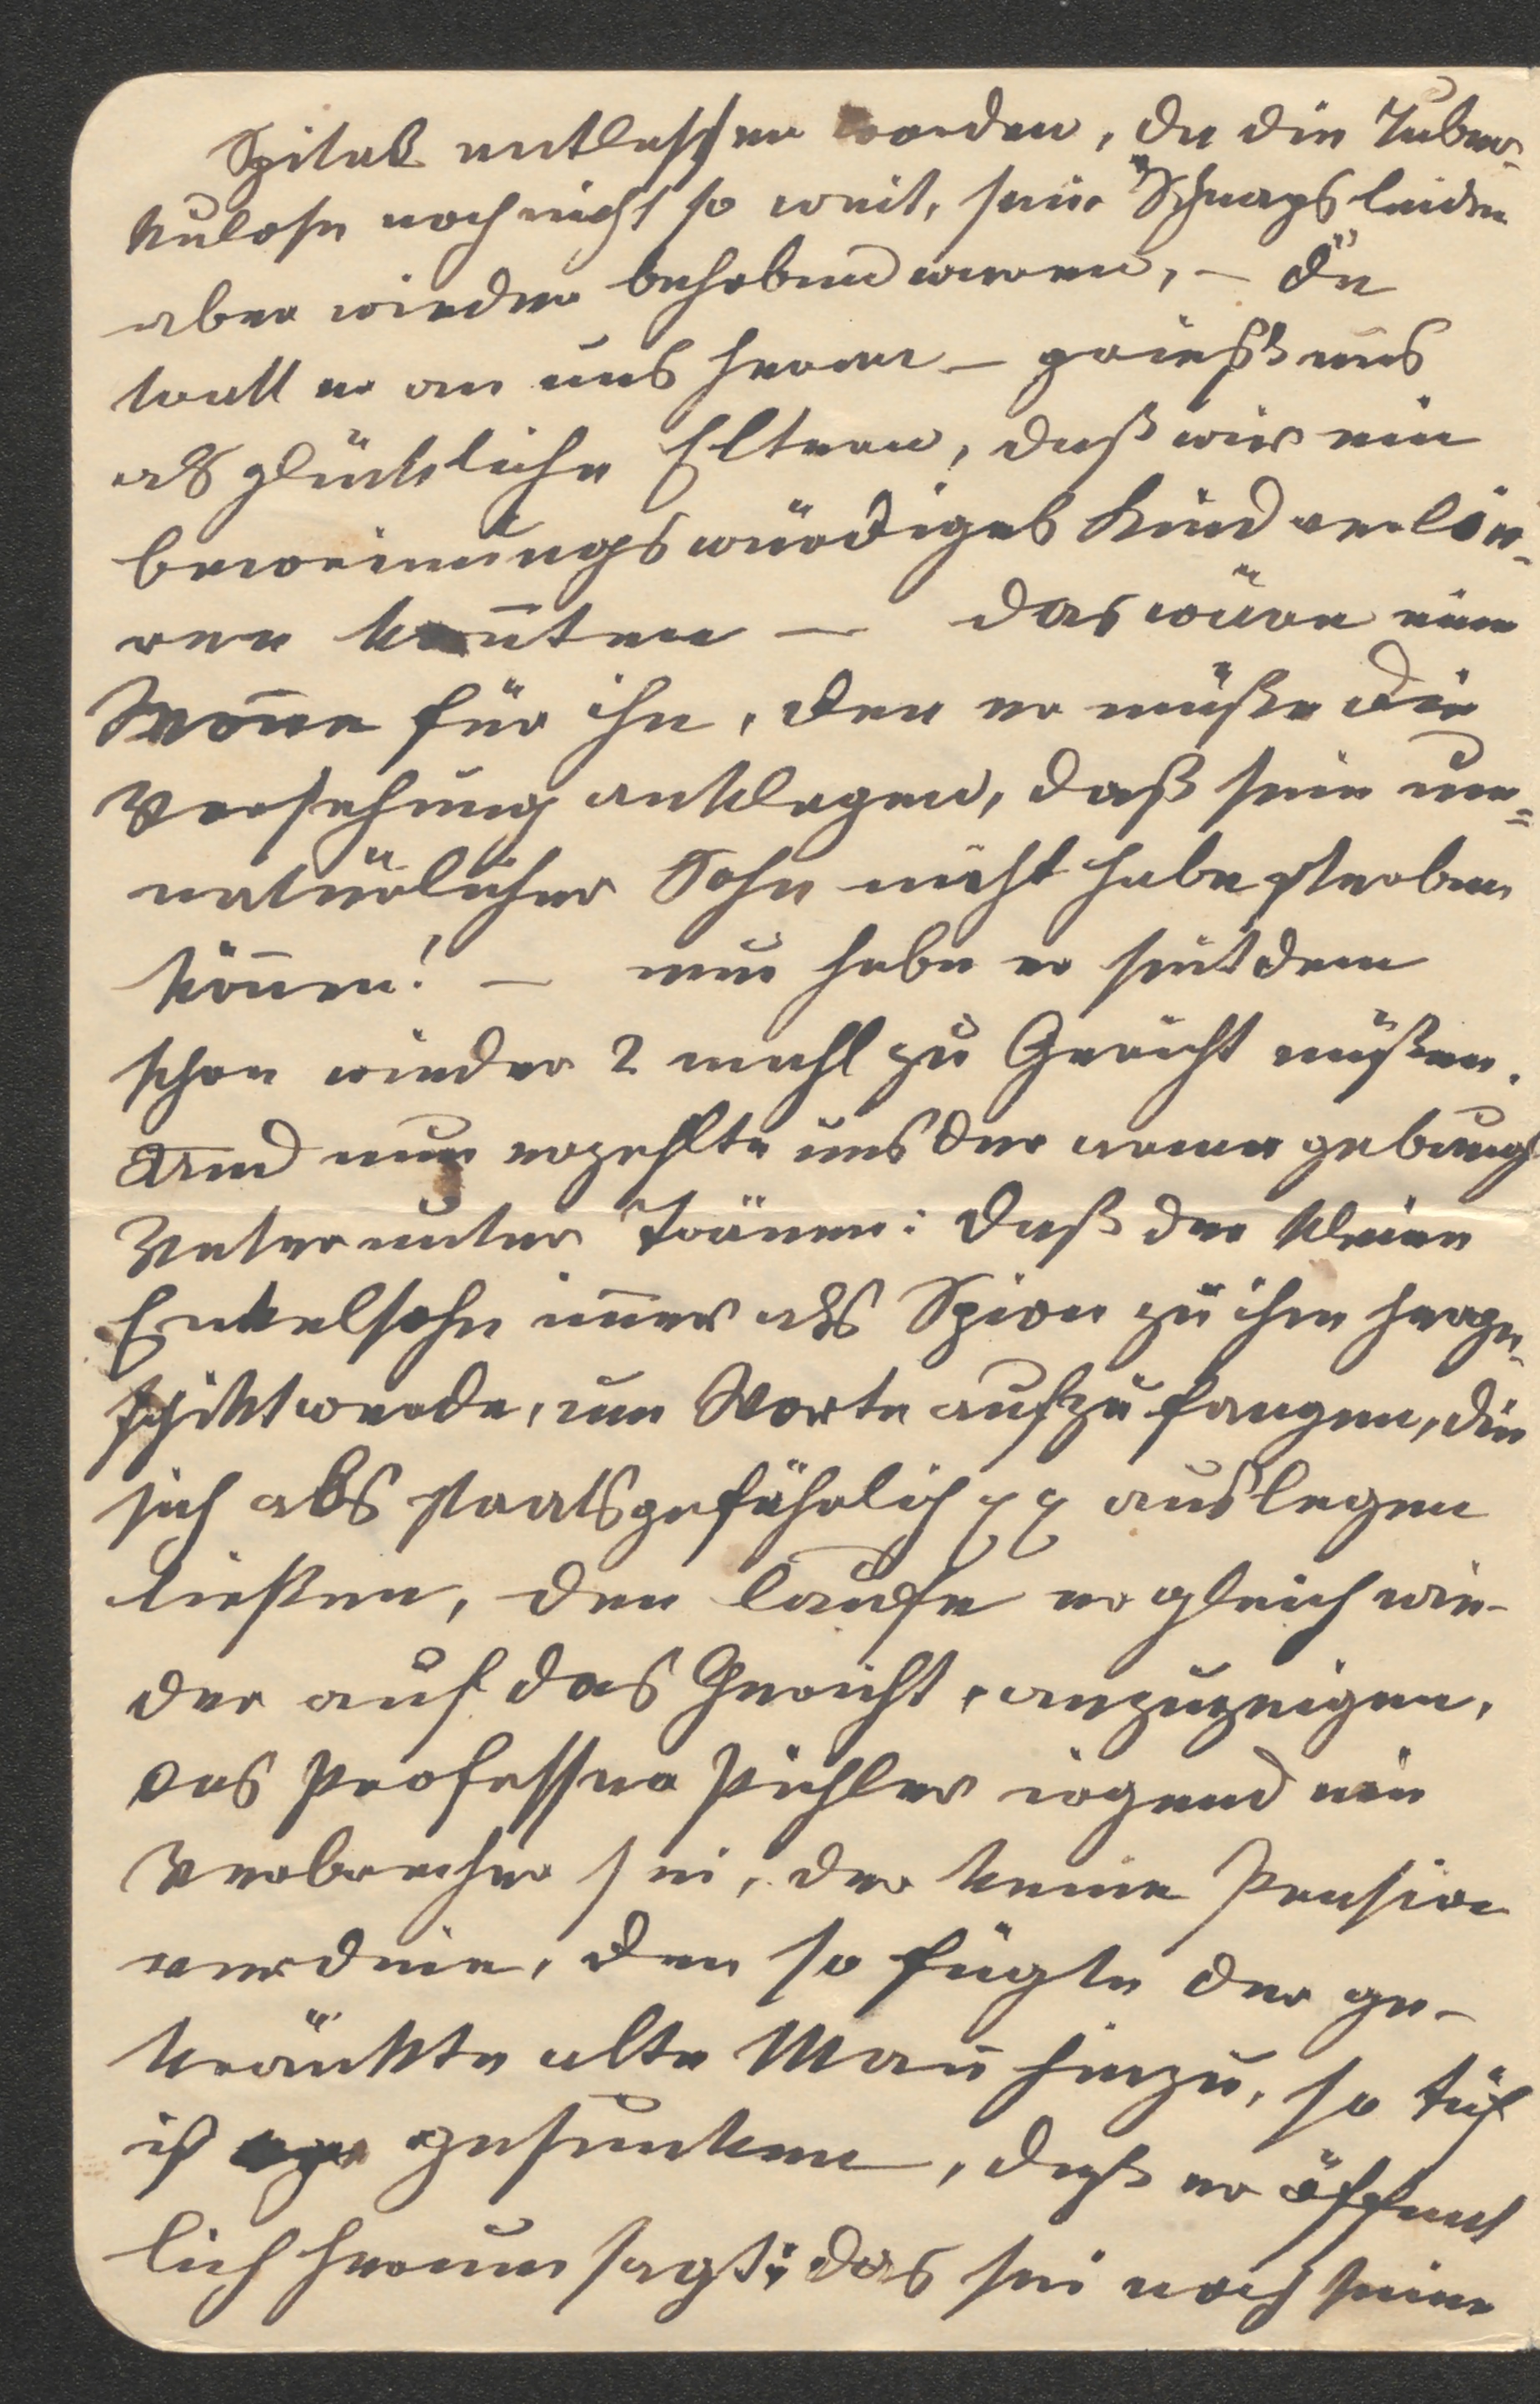 Spitale entlassen worden, da die Tuber-
kulose noch nicht so weit, seine "Schnapsleiden
aber wieder behoben waren, – da
tratt er an uns heran – prießt uns
als glückliche Eltern, daß wir ein
beweinungswürdiges Kind verlie-
ren konnten – das wäre eine
Wonne für ihn, den er müße die
Versehung anklagen, daß sein un-
natürlicher Sohn nicht habe sterben
können! – nun habe er seitdem
schon wieder 2 mahl zu Gericht müßen.
Und nun erzehlte uns der arme gebeugte
Vater unter Tränen: daß der kleine
Enkelsohn immer als Spion zu ihm herge-
schikt werde, um Worte aufzufangen, die
sich als staatsgefährlich auslegen
ließen, den laufe er gleich wie-
der auf das Gericht, anzuzeigen,
das Professor Pichler irgend ein
Verbrecher sei, der keine Pension
verdine, den so fügte der ge-
kränkte alte Mann hinzu, so tief
ist er gesunken, daß er öffent
lich herum sagt: das sei noch seine